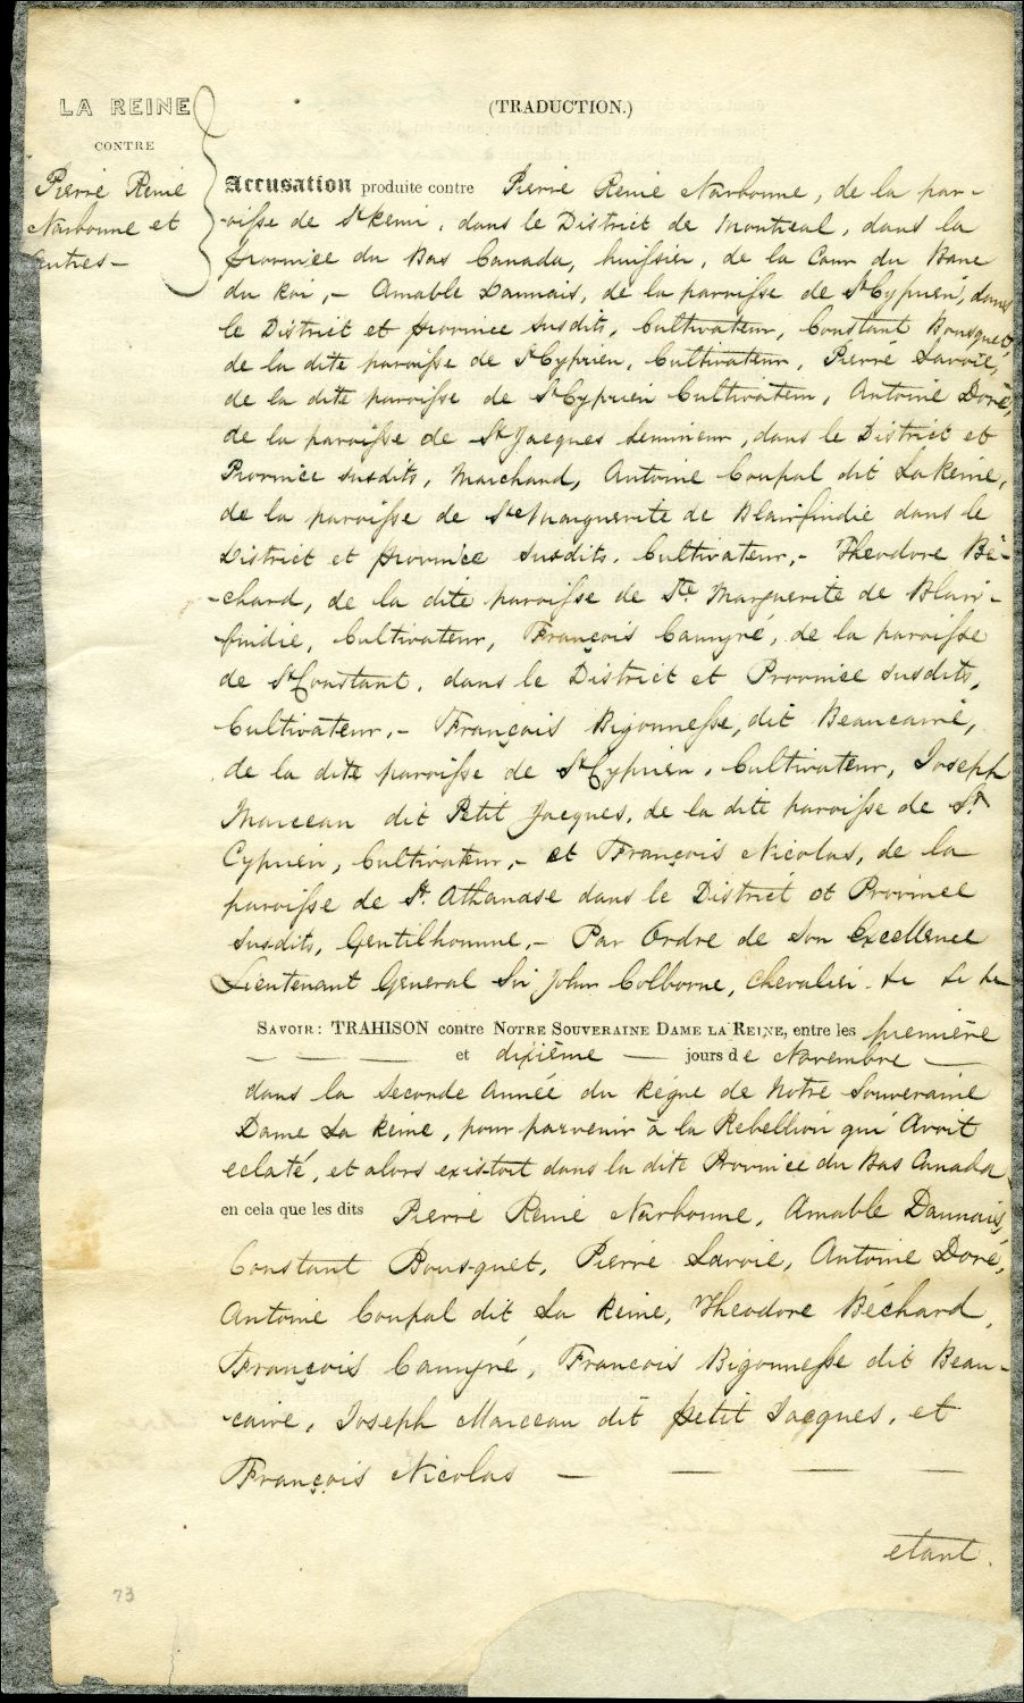 LA REINE
CONTRE
Pierre Remi
Narbonne et
autres –
(TRADUCTION.)
Accusation produite contre Pierre Remi Narbonne, de la par-
-oisse de St Remi, dans le District de Montreal, dans la
province du Bas Canada, huissier, de la Cour du Banc
du Roi, – Amable Daunais, de la paroisse de St Cyprien, dans
le District et province susdits, Cultivateur, Constant Bousquet,
de la dite paroisse de St Cyprien, Cultivateur, Pierre Lavoie,
de la dite paroisse de St Cyprien Cultivateur, Antoine Doré,
de la paroisse de St Jacques Lemineur, dans le District et
Province susdits, Marchand, Antoine Coupal dit La Reine,
de la paroisse de Ste Marguerite de Blairfindie dans le
District et province susdits, Cultivateur, – Theodore Bé-
-chard, de la dite paroisse de Ste Marguerite de Blair-
findie, Cultivateur, François Camyré, de la paroisse
de St Constant, dans le District et Province susdits,
Cultivateur, – François Bigonnesse, dit Beaucaire,
de la dite paroisse de St Cyprien, Cultivateur, Joseph
Marceau dit Petit Jacques, de la dite paroisse de St
Cyprien, Cultivateur, – et François Nicolas, de la
paroisse de St. Athanase dans le District et Province
susdits, Gentilhomme, – Par Ordre de Son Excellence
Lieutenant General Sir John Colborne, Chevalier &c &c &c
SAVOIR : TRAHISON contre NOTRE SOUVERAINE DAME LA REINE, entre les première
— — — et dixième — jours de Novembre —
dans la Seconde Année du Règne de Notre Souveraine
Dame La Reine, pour parvenir à la Rebellion qui Avoit
eclaté, et alors existoit dans la dite Province du Bas Canada,
en cela que les dits Pierre Remi Narbonne, Amable Daunais,
Constant Bousquet, Pierre Lavoie, Antoine Doré,
Antoine Coupal dit La Reine, Theodore Béchard,
François Camyré, Francois Bigonnesse dit Beau-
-caire, Joseph Marceau dit petit Jacques, et
François Nicolas — — — —
etant.
73